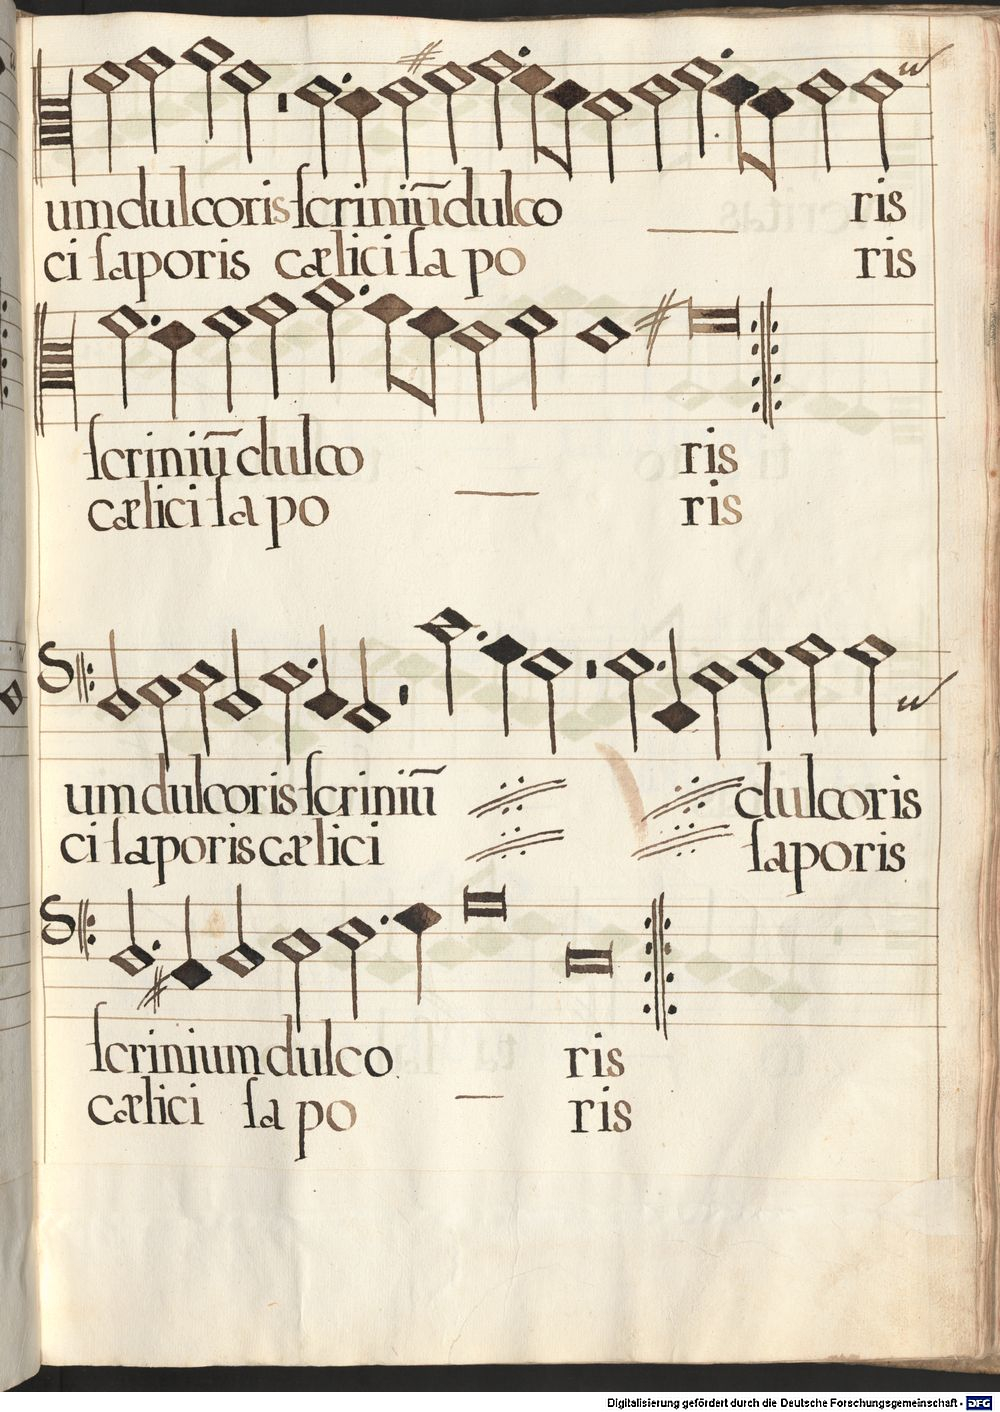 um dulcoris scriniū dulco ris
ci saporis cælici sa po ris
scriniū dulco ris
cælici sa po ris
um dulcoris scriniū dulcoris
ci saporis cælici saporis
scrinium dulco ris
cælici sa po ris
Digitalisierung gefördert durch die Deutsche Forschungsgemeinschaft - DFG